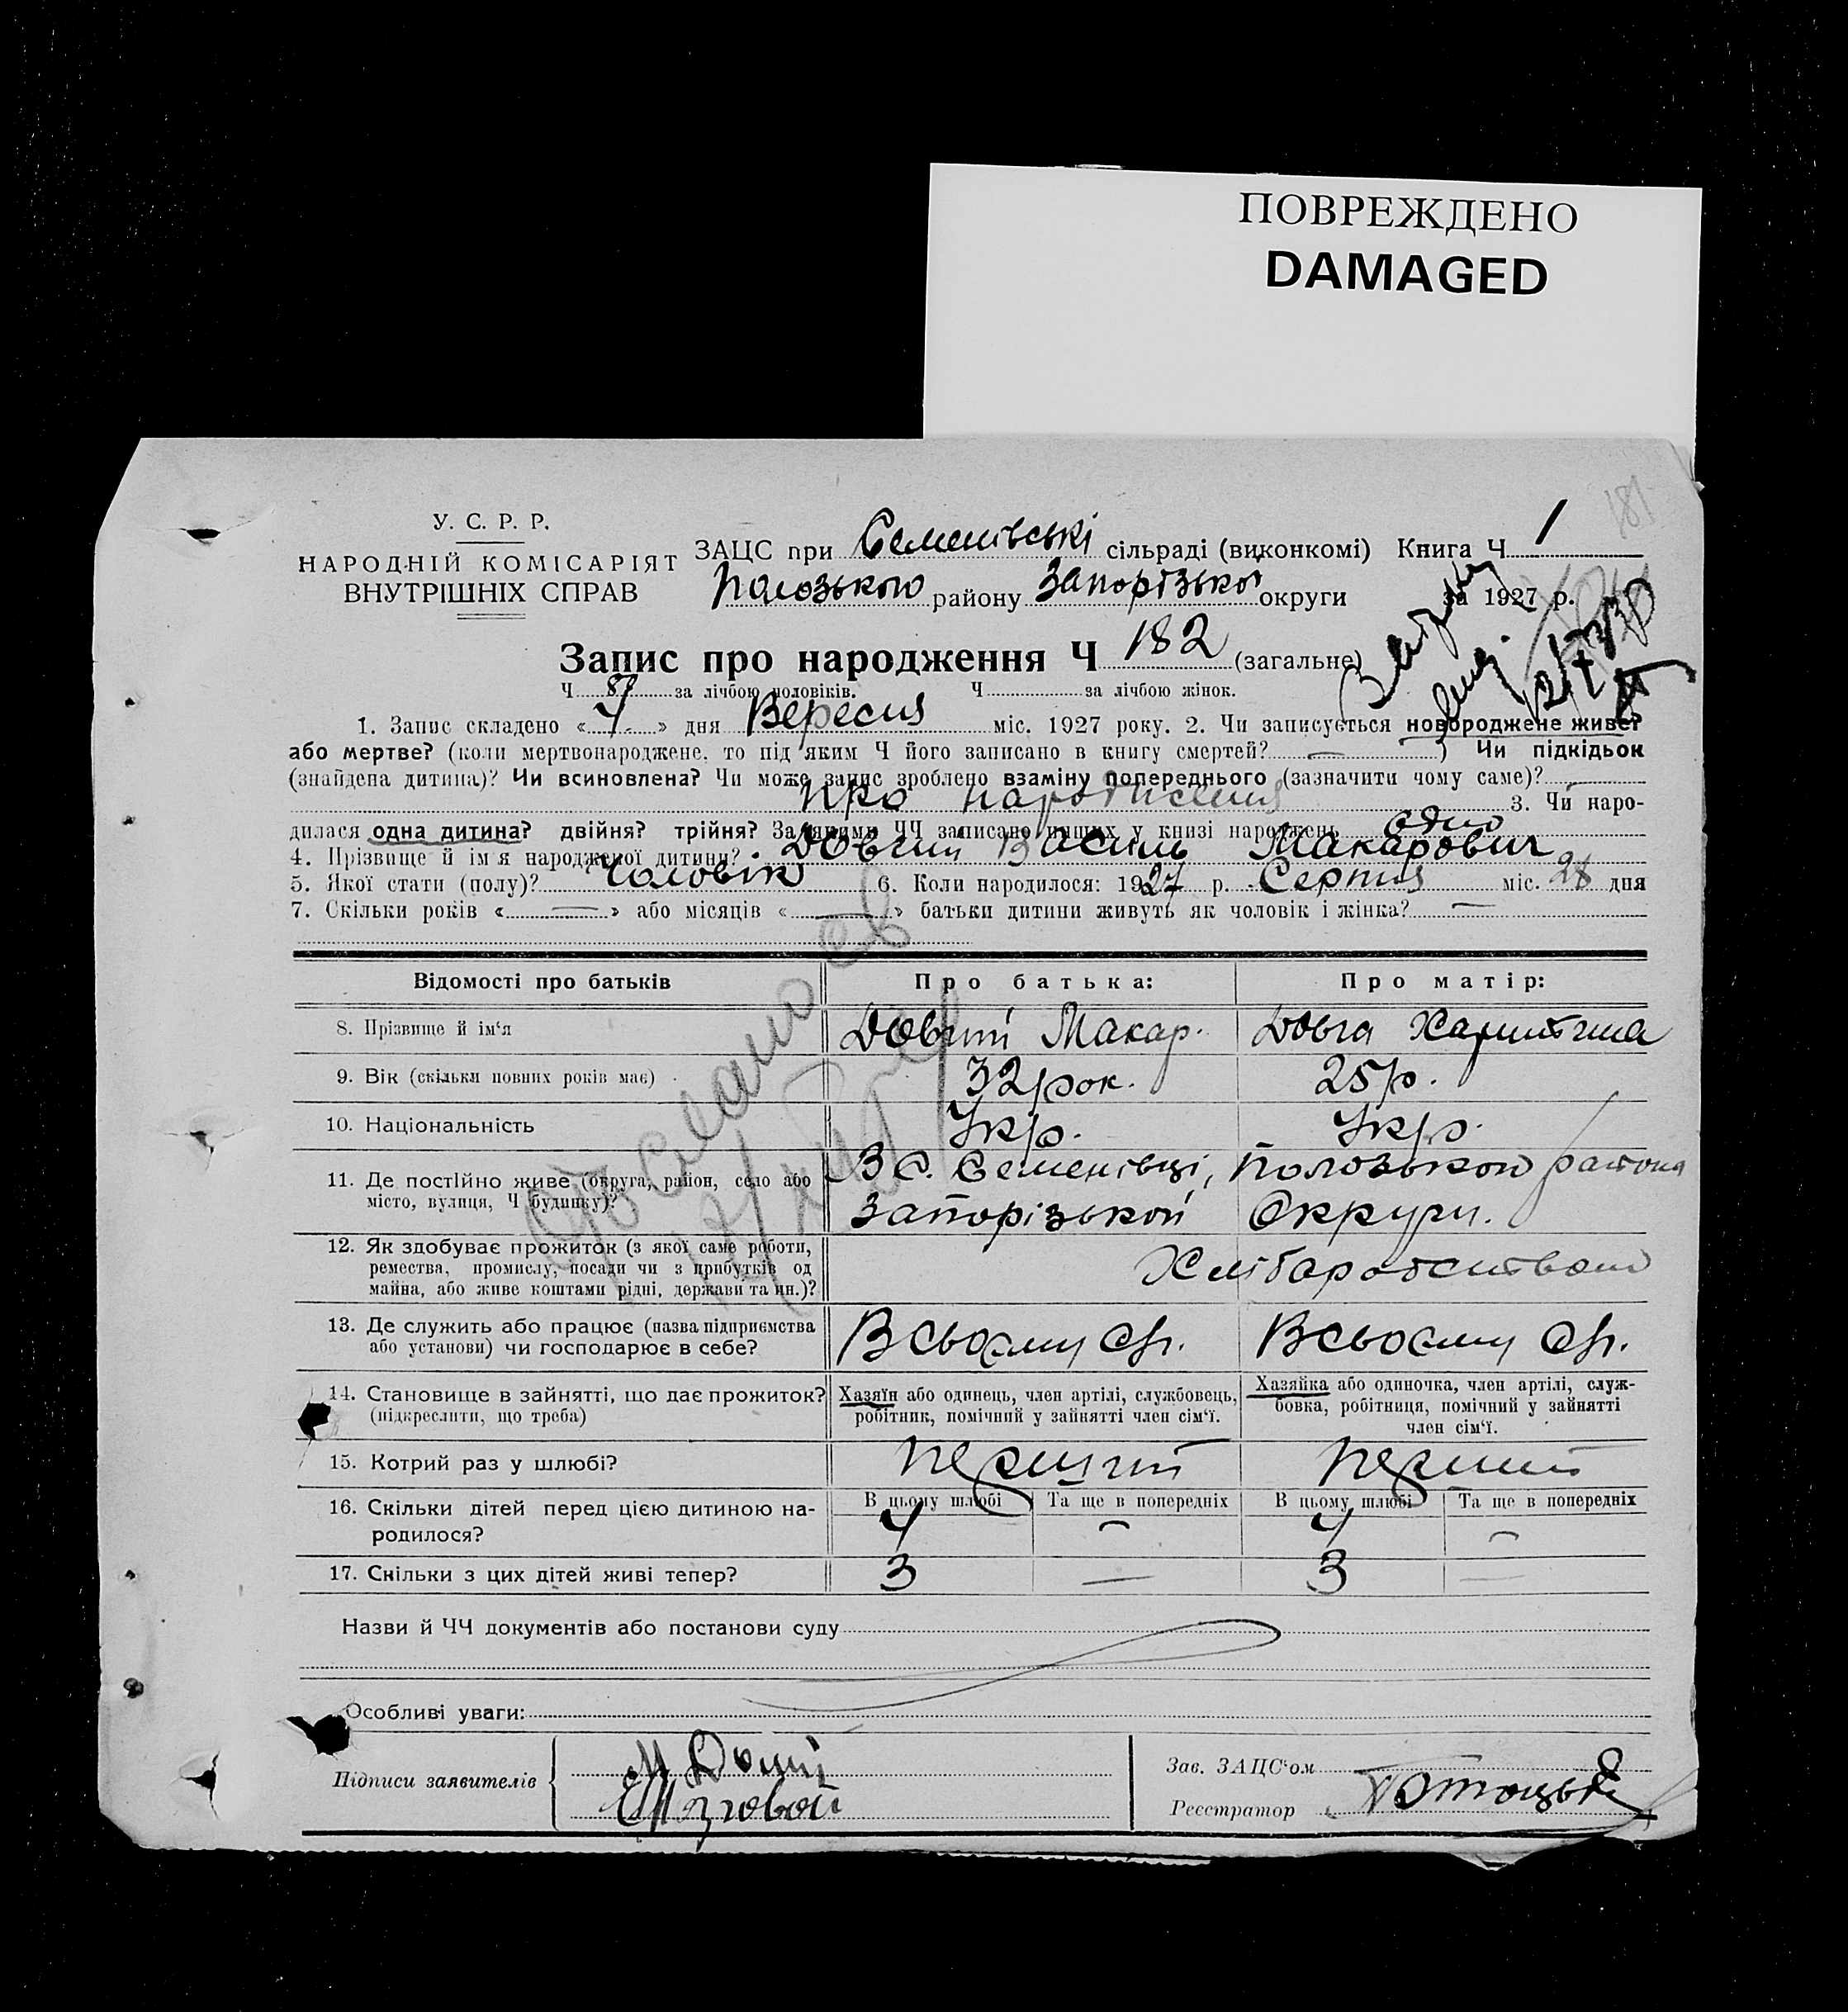 ПОВРЕЖДЕНО
DAMAGED
181
У. С. Р. Р.
НАРОДНІЙ КОМІСАРІЯТ
ВНУТРІШНІХ СПРАВ
ЗАЦС при Семенівські сільраді (виконкомі) Книга Ч 1
Полозького району Запорізької округи за 1927 р.
Запис про народження Ч 182 (загальне)
Ч 87 за лічбою чоловіків. Ч за лічбою жінок.
1. Запис складено « 4 » дня Вересня міс. 1927 року. 2. Чи записується новороджене живе?
або мертве? (коли мертвонароджене, то під яким Ч його записано в книгу смертей? — ) Чи підкідьок
(знайдена дитина)? Чи всиновлена? Чи може запис зроблено взаміну попереднього (зазначити чому саме)? —
про народження 3. Чи наро-
дилася одна дитина? двійня? трійня? За якими ЧЧ записано инших у книзі народжень одно
4. Прізвище й ім'я народженої дитини? Довгий Василь Макарович
5. Якої стати (полу)? Чоловік 6. Коли народилося: 1927 р. Серпня міс. 28 дня
7. Скільки років « — » або місяців « — » батьки дитини живуть як чоловік і жінка? —
Відомості про батьків Про батька: Про матір:
8. Прізвище й ім'я Довгий Макар. Довга Харитина
9. Вік (скільки повних років має) 32 рок. 25 р.
10. Національність Укр. Укр.
11. Де постійно живе (округа, район, село або В с. Семенівці, Полозького района
місто, вулиця, Ч будинку)? Запорізької Округи.
12. Як здобуває прожиток (з якої саме роботи,
ремества, промислу, посади чи з прибутків од
майна, або живе коштами рідні, держави та ин.)? Хліборобством
13. Де служить або працює (назва підприємства
або установи) чи господарює в себе? В сьоему В сьоему
14. Становище в зайнятті, що дає прожиток? Хазяїн або одинець, член артілі, службовець, Хазяйка або одиночка, член артілі, служ-
(підкреслити, що треба) робітник, помічний у зайнятті член сім'ї. бовка, робітниця, помічний у зайнятті
член сім'ї.
15. Котрий раз у шлюбі? перший перший
16. Скільки дітей перед цією дитиною на- В цьому шлюбі Та ще в попередніх В цьому шлюбі Та ще в попередніх
родилося? 4 — 4 —
17. Скільки з цих дітей живі тепер? 3 — 3 —
Назви й ЧЧ документів або постанови суду
Особливі уваги:
Підписи заявителів М Довгий
Мозговой
Зав. ЗАЦС'ом
Реєстратор Потоцький